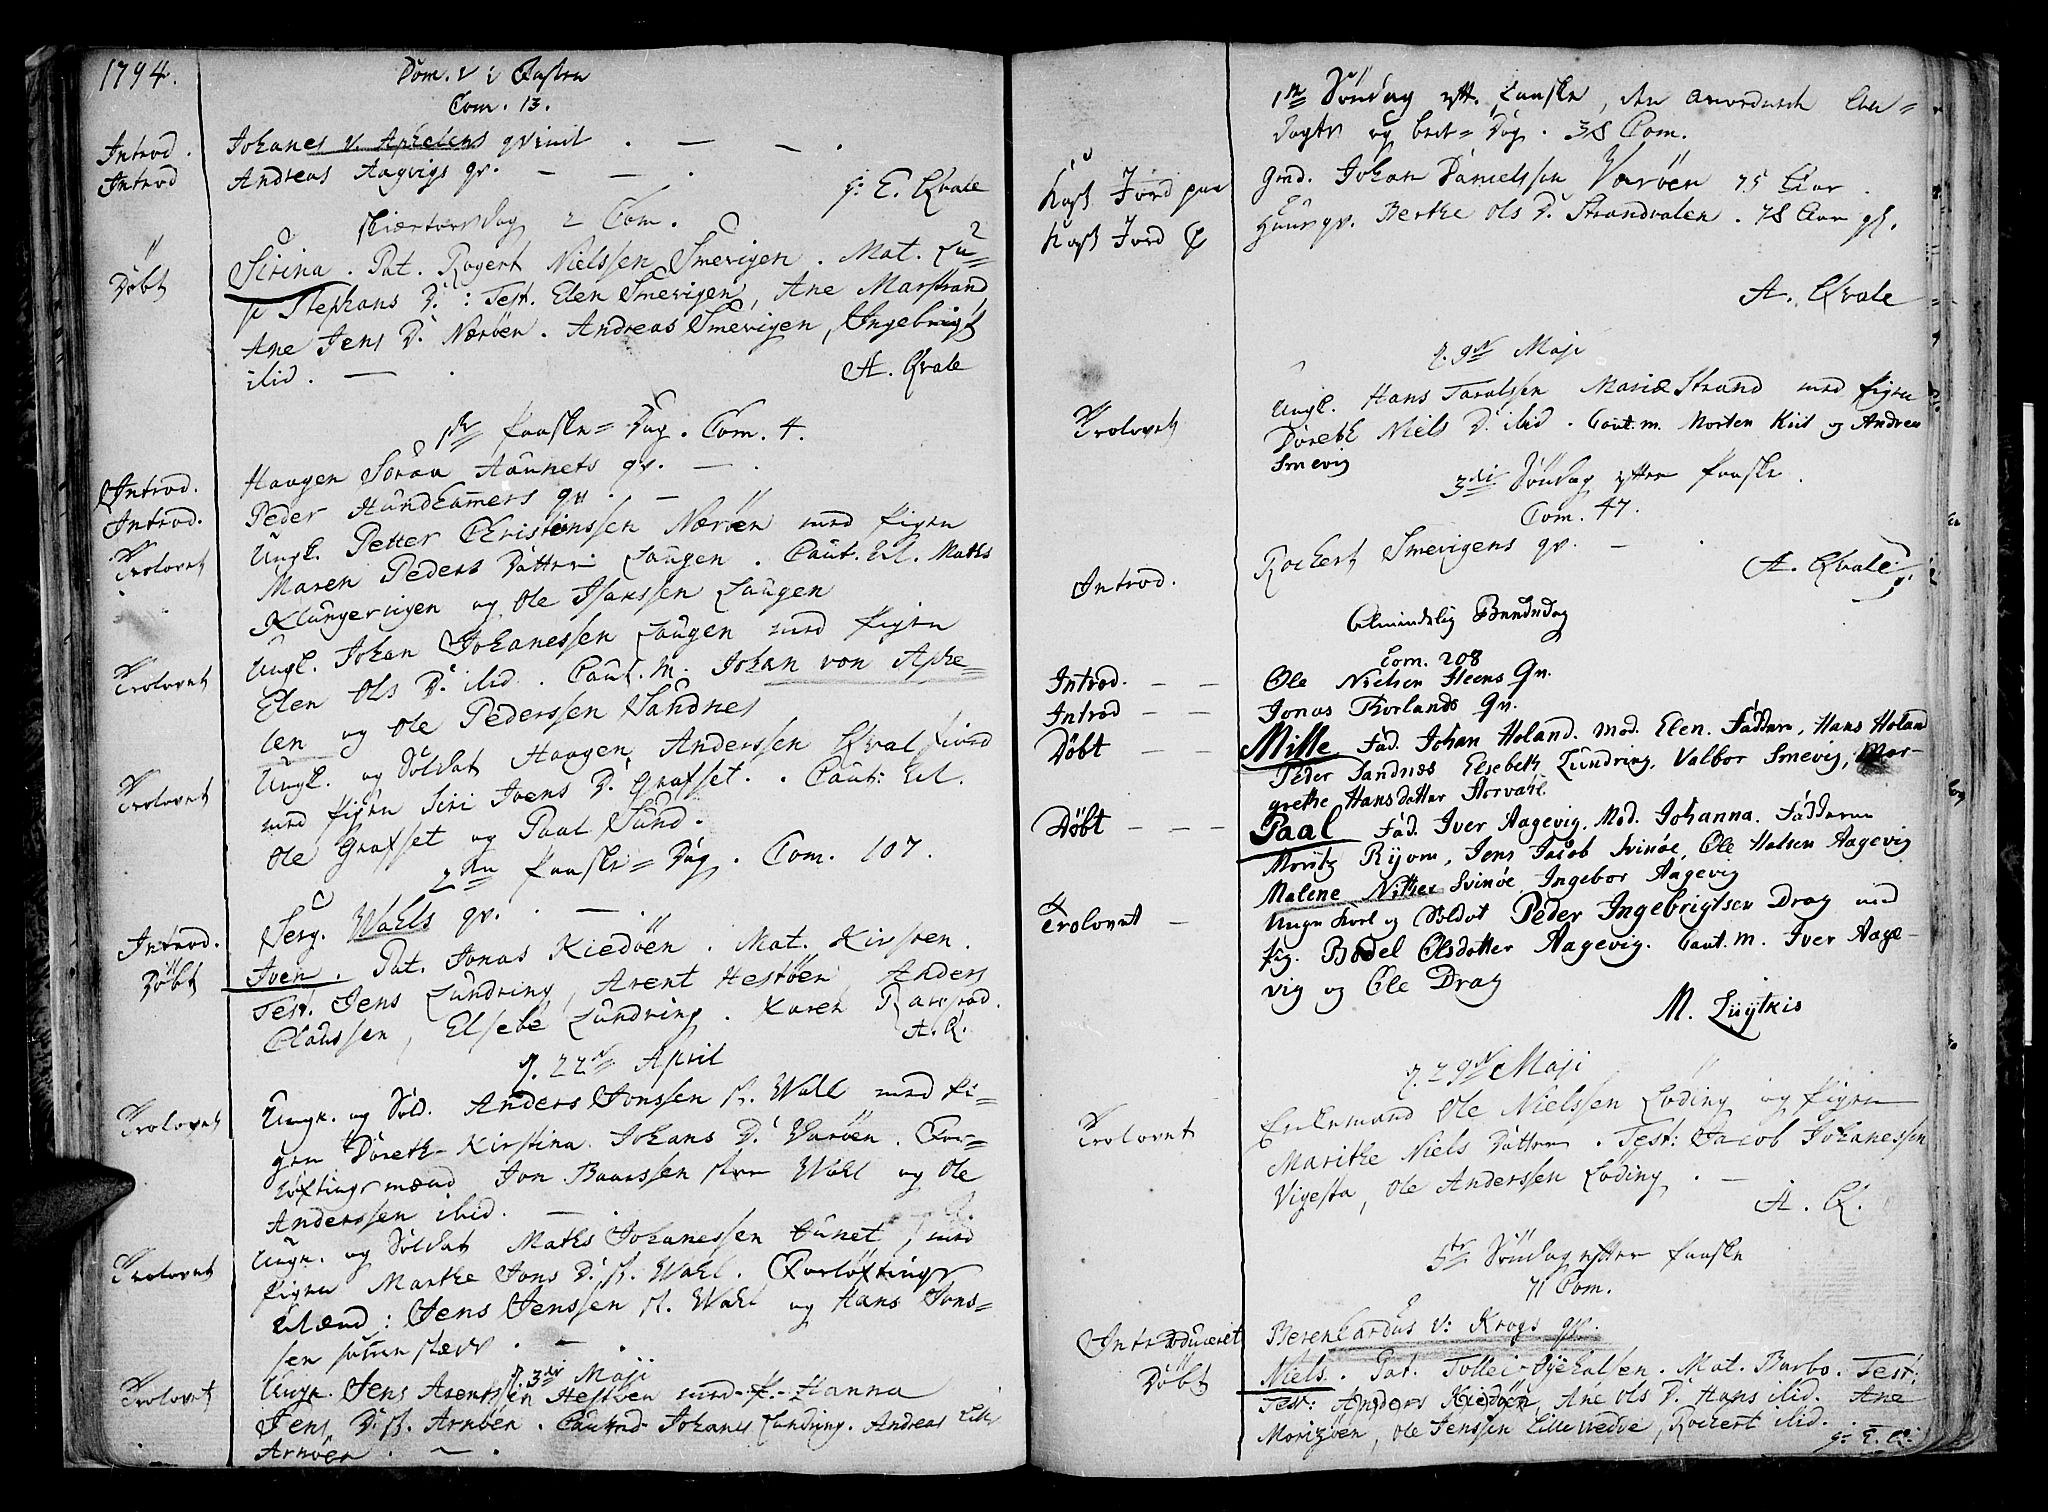 1794.
Dom.
Com. 13.
Introd. Johanes v. Aphelens qvinde
Introd Andreas Aagvigs qv.
g: E. Qvale
Skiærtorsdag 2 Com.
Døbt Sirina. Pat. Rogert Nielssen Smevigen. Mat. Lu=
Stephans D.: Test. Elen Smevigen, Ane Marstrand
Ane Jens D. Nærøen. Andreas Smevigen, Ingebrigt
ibid.
A. Qvale
1ste Paaske=Dag. Com. 4.
Introd. Haagen Soraa Aaunets qv.
Introd. Peder Hundkamers qv.
Trolovet Ungk. Petter Christenssen Nærøen med Pigen
Maren Peders Datter Laugen. Caut. Ed. Maths
Klungervigen og Ole Hanssen Laugen
Trolovet Ungk. Johan Johanessen Laugen med Pigen
Elen Ols D. ibid. Caut. M. Johan von Aphe=
len og Ole Pederssen Sandnes
Trolovet Ungk. og Soldat Haagen Anderssen Qval
med Pigen Siri Ivens D. Grafset. Caut: Ed.
Ole Grafset og Paal Sund.
2den Paaske=Dag. Com. 107.
Introd. Serg. Wahls qv.
Døbt Iven. Pat. Jonas Kiedøen. Mat. Kirsten.
Test. Jens Lundring, Arent Hestøen Anders
Claussen, Elsebe Lundring. Karen
A. Q.
d. 22de April
Trolovet Ungk. og Sold. Anders Jonssen st. Wahl med Pi=
gen Doreth Kirstina Johans D. Varøen. For=
løftings mænd Jon Baarssen store Wahl og Ole
Anderssen ibid.
Trolovet Ungk. og Soldat Maths Johanessen Tunet, med
Pigen Marthe Jons D. st. Wahl. Forløftings
Mænd: Jens Jenssen st. Wahl og Hans Jons=
sen samme stæd
d. 3die Maji
Trolovet Ungk. Jens Arentssen Hestøen med P. Hanna
Jens D. st. Arnøen. Johanes Lundring. Andreas Lille
Arnøen.
1ste Søndag eft. Paaske, den anordnede
dags og bede=Dag. 38 Com.
Kast Jord paa Gmd. Johan Danielssen Varøen 75 Aar.
Kast Jord p Huusqv. Berthe Ols D. Strandvalen. 78 Aar gl.
A. Qvale
d. 9de Maji
Trolovet Ungk. Hans Taralssen Mariæ Strand med Pigen
Doreth Niels D. ibid. Caut. m. Morten Kiil og Andreas
Smevig
3die Søndag efter Paaske.
Com. 47.
Introd. Rochert Smevigens qv.
A. Qvale
Almindelig Bededag
Com. 208
Introd. Ole Nielsen Steens Qv.
Introd Jonas Thorlands Qv.
Døbt Mille Fad. Johan Holand. Mod. Elen. Faddere, Hans Holand
Peder Sandnæs Elsebeth Lundring, Valbor Smevig, Mar-
grethe Hansdatter Horvahl
Døbt Paal Fad. Iver Aagevig. Mod. Johanna. Faddere
Moritz Ryom, Jens Jacob Svinøe, Ole Halsen Aagevig
Malene Nitter Svinøe, Ingebor Aagevig
Trolovet Unge Karl og Soldat Peder Ingebrigtsen Drag med
Pig. Bodel Olsdatter Aagevig. Caut. M. Iver Aage-
vig og Ole Drag
M. Lüytkis
d. 29de Maji
Trolovet Enkemand Ole Nielssen Løding og Pigen
Marithe Niels Datter. Test: Jacob Johanessen
Vigesta, Ole Anderssen Løding.
A. Q.
5te Søndag efter Paaske
71 Com.
Introduceret Berenhardus v: Krogs qv.
Døbt Niels. Pat. Tollei Mat. Barbo. Test:
Test: Anders Kiedøen, Ane Ols D. Hans ibid. Ane
Morizøen, Ole Jenssen Lille Wedde, Rochert ibid.
g: E. Q: